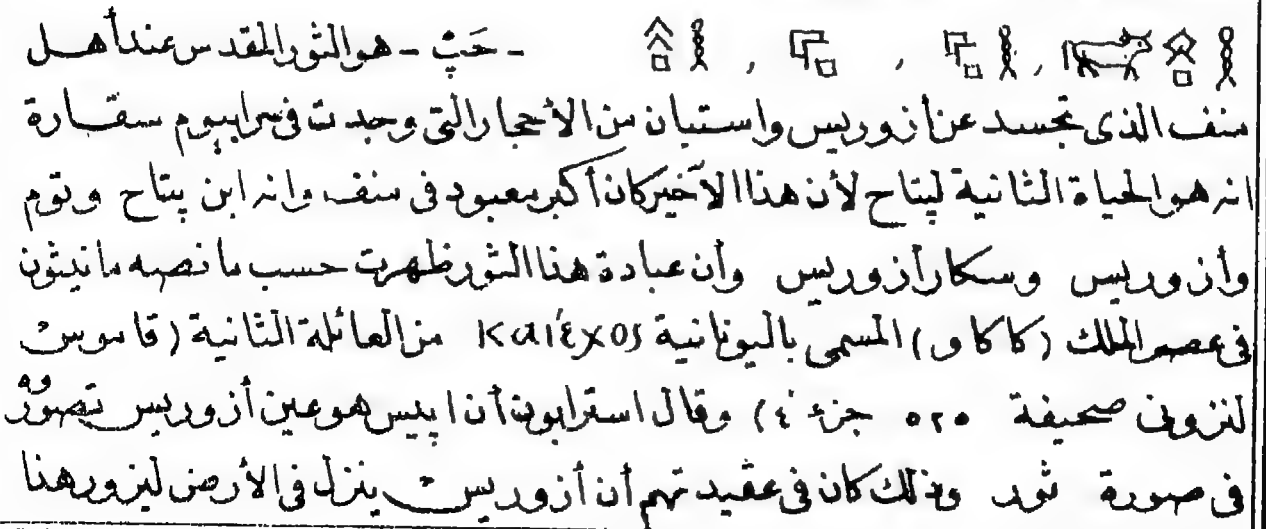 - حَپْ - هو الثور المقدس عند أهل
منف الذى تجسد عن أزوريس واستبان من الأحجار التى وجدت فى سرابيوم سقارة
انه هو الحياة الثانية لپتاح لأن هذا الأخير كان أكبر معبود فى منف وانه ابن پتاح وتوم
وأزوريس وسكار أزوريس وأن عبادة هذا الثور ظهرت حسب ما نصبه مانيثون
فى عصر الملك (كاكاو) المسمى باليونانية Καιέχος من العائلة الثانية (قاموس
لنزونى صحيفة ٥٢٥ جزء ٤) وقال استرابون أن اپيس هو عين أزوريس تصوّروه
فى صورة ثور وذلك كان فى عقيدتهم أن أزوريس ينزل فى الأرض ليزورهنا